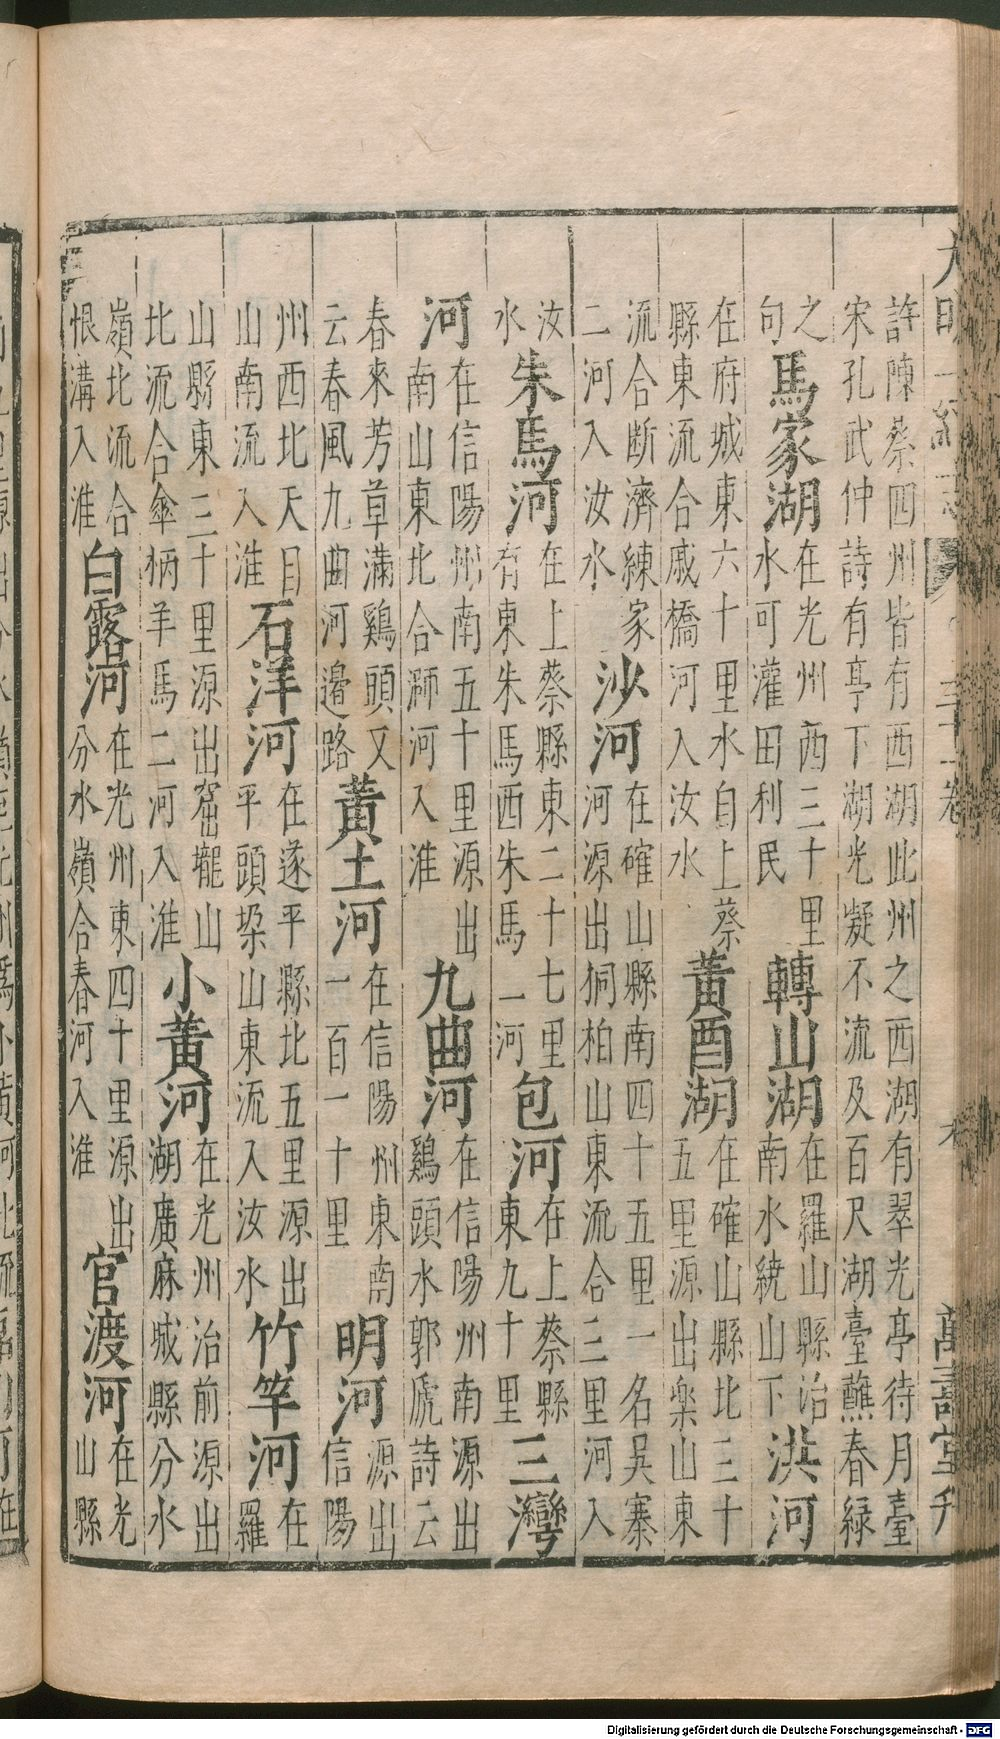 大明一統志 三十一卷 萬壽堂刊
許陳蔡四州皆有西湖此州之西湖有翠光亭待月臺
宋孔武仲詩有亭下湖光凝不流及百尺湖臺蘸春緑
之
句
馬家湖
在光州西三十里
水可灌田利民
轉山湖
在羅山縣治
南水繞山下
洪河
在府城東六十里水自上蔡
縣東流合戚橋河入汝水
黃酉湖
在確山縣北三十
五里源出樂山東
流合断濟練家
二河入汝水
沙河
在確山縣南四十五里一名吳寨
河源出桐柏山東流合三里河入
汝
水
朱馬河
在上蔡縣東二十七里
有東朱馬西朱馬二河
包河
在上蔡縣
東九十里
三灣
河
在信陽州南五十里源出
南山東北合溮河入淮
九曲河
在信陽州南源出
鷄頭水郭虒詩云
春來芳草滿鷄頭又
云春風九曲河邊路
黃土河
在信陽州東南
一百一十里
明河
源出
信陽
州西北天目
山南流入淮
石洋河
在遂平縣北五里源出
平頭垛山東流入汝水
竹竿河
在
羅
山縣東三十里源出窑壠山
北流合傘柄羊馬二河入淮
小黃河
在光州治前源出
湖廣麻城縣分水
嶺北流合
恨溝入淮
白露河
在光州東四十里源出
分水嶺合春河入淮
官渡河
在光
山縣
Digitalisierung gefördert durch die Deutsche Forschungsgemeinschaft - DFG